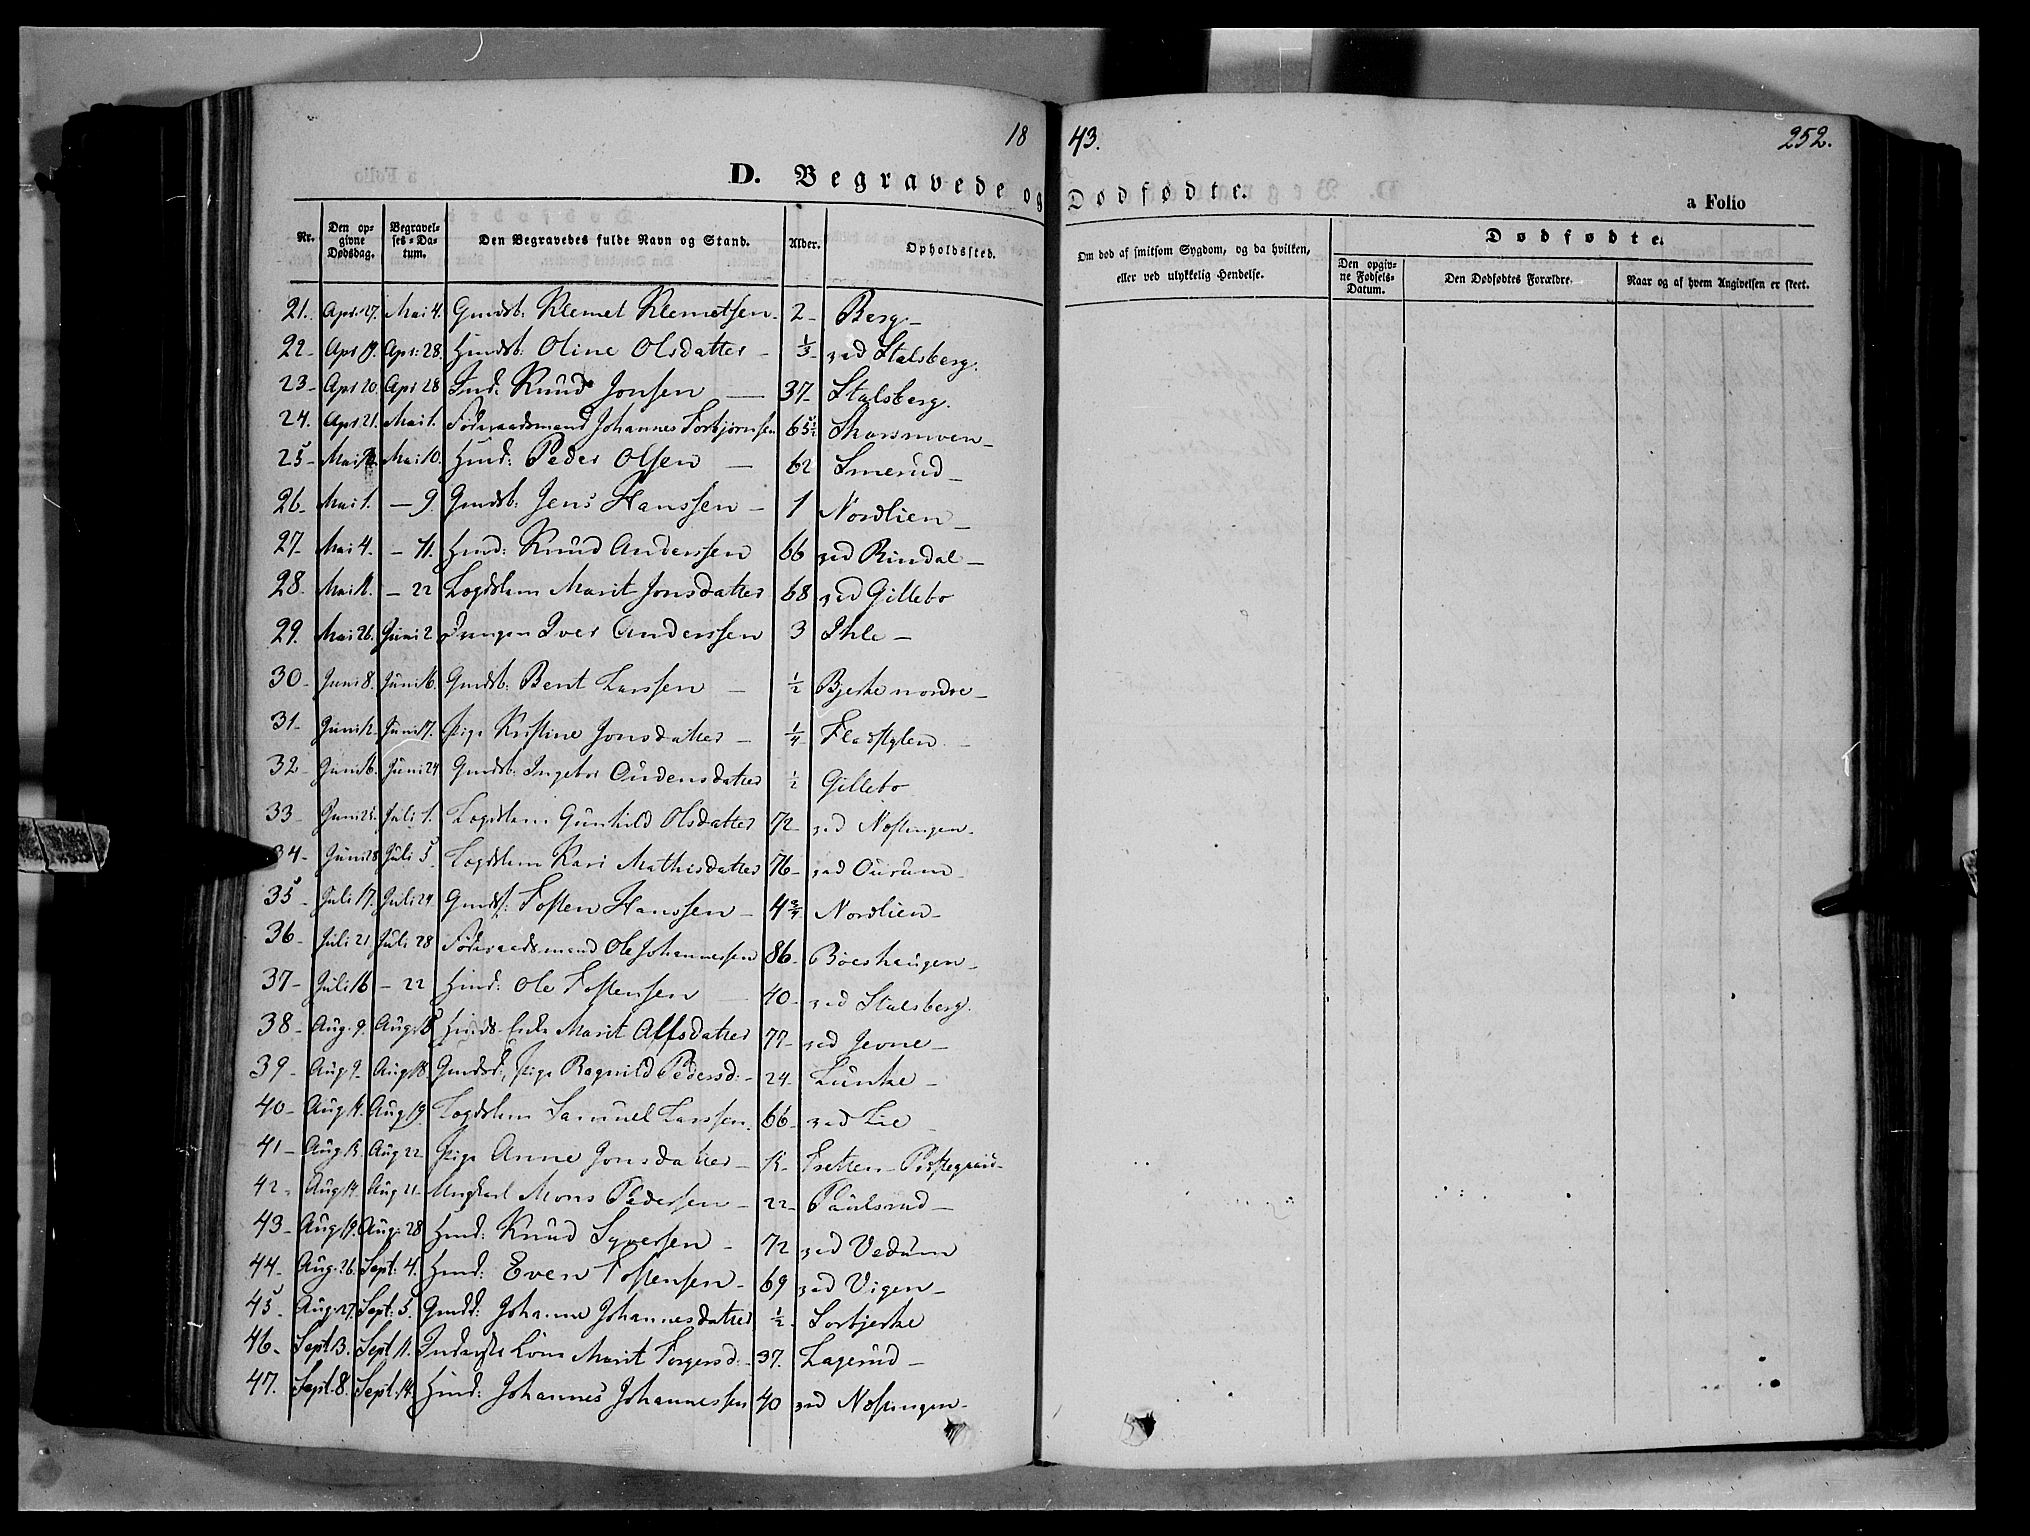 18 43. 252.
D. Begravede og Dødfødte. a Folio
Nr. Den opgivne Dødsdag. Begravelses-Datum. Den Begravedes fulde Navn og Stand. Alder. Opholdssted. Om død af smitsom Sygdom, og da hvilken, eller ved ulykkelig Hendelse. Dødfødte. Den opgivne Fødsels-Datum. Den Dødfødtes Forældre. Naar og af hvem Angivelsen er skeet.
21. Apr: 27. Mai 4. Gmdsb: Klemet Klemetsen 2 - Berg -
22 - Apr 19. Apr: 28. Hmdsb: Oline Olsdatter - 1/3 - ved Stalsberg.
23 - Apr 20. Apr 28 Ind: Knud Jonsen - 37 - Stalsberg.
24. Apr 21. Mai 1. Føderaadsmand Johannes Torbjørnsen 65 1/2 Skarsmoen -
25 - Mai Mai 10. Hmd: Peder Olsen - 62 Smerud -
26 - Mai 1. - 9 Gmdsb: Jens Hanssen - 1 Nordlien -
27 - Mai 4. - 11. Hmd: Knud Anderssen 66 ved Rindal -
28. Mai 11. - 22 Lægdslem Marit Jonsdatter 68 ved Gillebo
29. Mai 26. Juni 2 Drengen Iver Anderssen 3 Ihle -
30 - Juni 8. Juni 16. Gmdsb: Bent Larssen - 1/2 Bjerke nordre -
31 - Juni 12. Juni 17. Pige Kristine Jonsdatter - 1/4 Flasstylen. -
32 - Juni 16. Juni 24 Gmdsb: Ingebor Oudensdatter 1/2 Gillebo
33 - Juni 25. Juli 1. Lægdslem Gunhild Olsdatter 72 - ved Nostingen -
34 - Juni 28 Juli 5. Lægdslem Kari Mathisdatter 76 - ved Ourum -
35 - Juli 17. Juli 24. Gmds: Tosten Hanssen - 4 3/4 Nordlien -
36 - Juli 21 Juli 28 Føderaadsmand Ole Johannessen 86 - Böeshaugen -
37 - Juli 16 - 22 Hmd: Ole Tostensen - 40 - ved Stalsberg.
38 - Aug. 9. Aug: 18 Hmds Enke Marit Alfsdatter 77 - ved Jevne -
39 - Aug 9 - Aug 18. Gmdsd: Pige Ragnild Pedersd: - 24 - Lunke -
40 - Aug 14. Aug 19. Lægdslem Samuel Larssen. 66 - ved Lie
41 - Aug 15. Aug 22 Pige Anne Jonsdatter - 15 - Tretten - Præstegaard -
42 - Aug 14. Aug 21 - Ungkarl Mons Pedersen - 22 - Paulsrud -
43 - Aug 19. Aug: 28 Hmd: Knud Syversen - 72 ved Vedum
44 - Aug. 26. Sept: 4. Hmd: Even Tostensen - 69 ved Vigen -
45 - Aug: 27. Sept: 5. Gmdd: Johanne Johannesdatter 1/2 - Sorbjerke
46 - Sept 3. Sept 11. Inderste Kone Marit Torgersd: - 37. Lagerud -
47. Sept. 8. Sept. 14. Hmd: Johannes Johannessen 40 ved Nostingen -